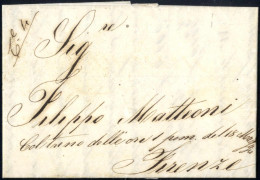 Sig.re
Filippo Matteoni
Col vano delle ore 1 pom. del 18
Firenze